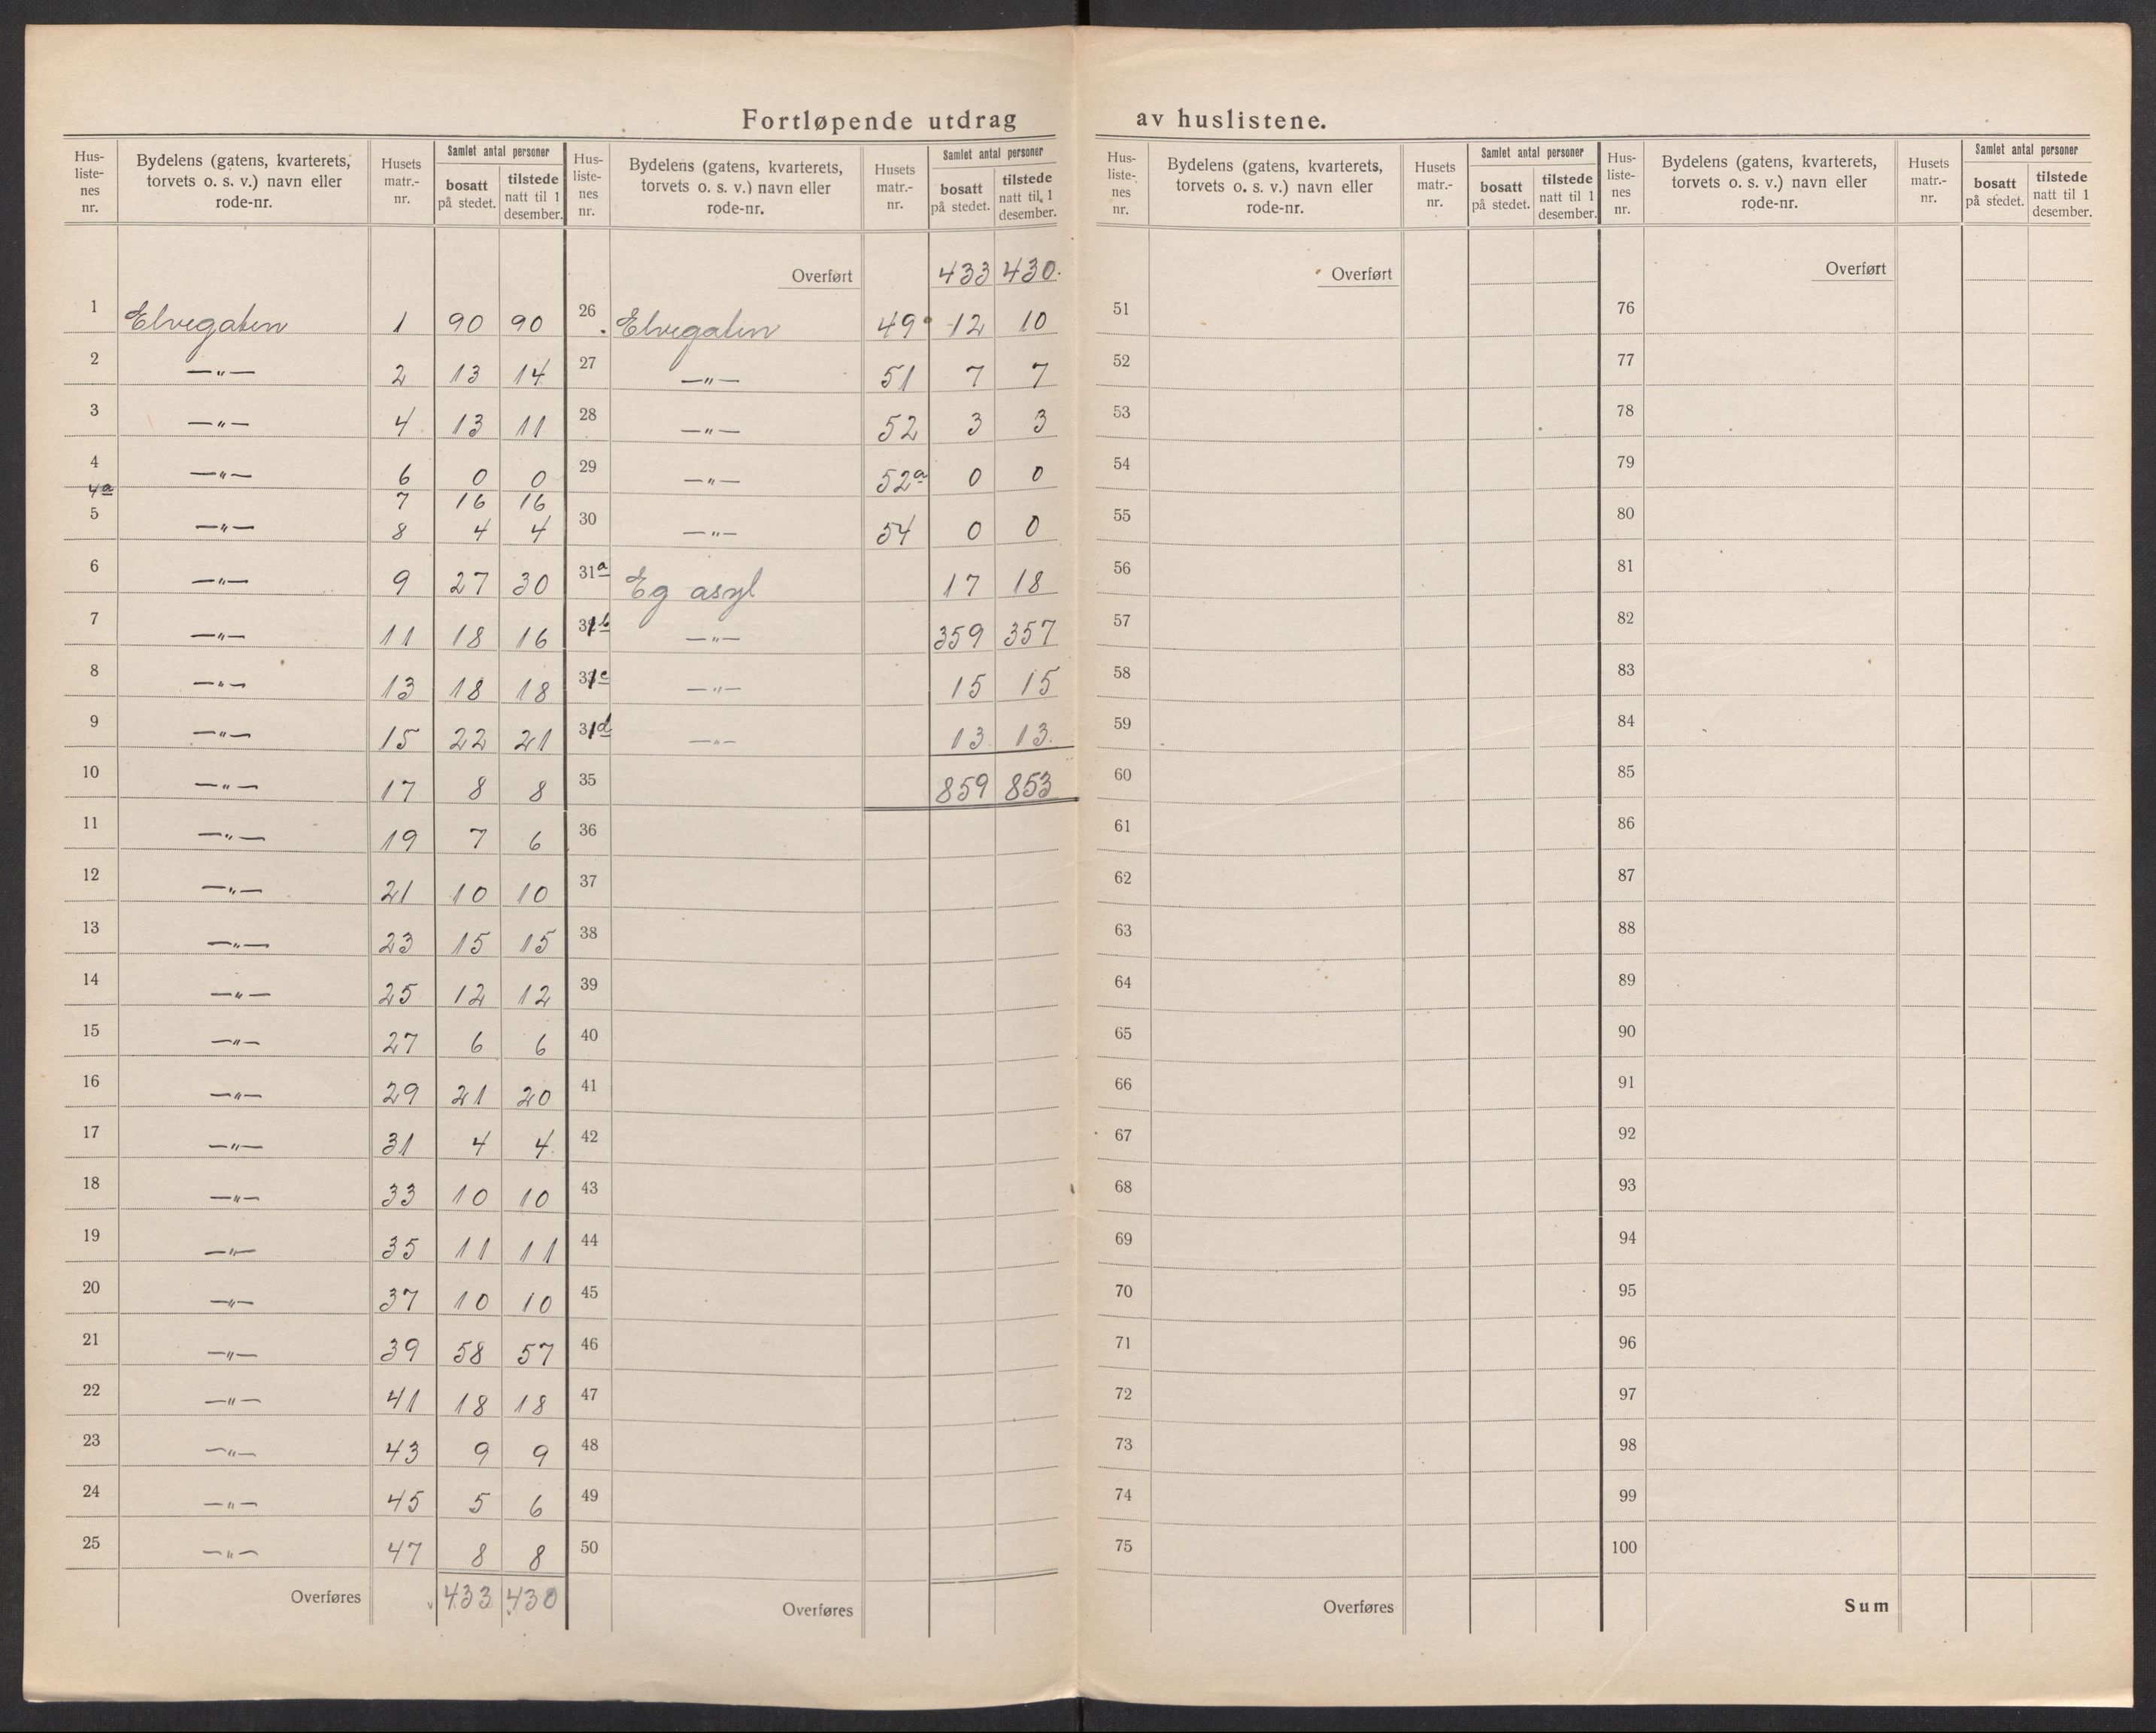 Fortløpende utdrag av huslistene.
Hus-listenes nr. | Bydelens (gatens, kvarterets, torvets o. s. v.) navn eller rode-nr. | Husets matr.-nr. | Samlet antal personer bosatt på stedet. | tilstede natt til 1 desember.
1 Elvegaten 1 90 90
2 —„— 2 13 14
3 —„— 4 13 11
4 —„— 6 0 0
4a 7 16 16
5 —„— 8 4 4
6 —„— 9 27 30
7 —„— 11 18 16
8 —„— 13 18 18
9 —„— 15 22 21
10 —„— 17 8 8
11 —„— 19 7 6
12 —„— 21 10 10
13 —„— 23 15 15
14 —„— 25 12 12
15 —„— 27 6 6
16 —„— 29 21 20
17 —„— 31 4 4
18 —„— 33 10 10
19 —„— 35 11 11
20 —„— 37 10 10
21 —„— 39 58 57
22 —„— 41 18 18
23 —„— 43 9 9
24 —„— 45 5 6
25 —„— 47 8 8
Overføres 433 430
Hus-listenes nr. | Bydelens (gatens, kvarterets, torvets o. s. v.) navn eller rode-nr. | Husets matr.-nr. | Samlet antal personer bosatt på stedet. | tilstede natt til 1 desember.
Overført 433 430.
26 Elvegaten 49 12 10
27 —„— 51 7 7
28 —„— 52 3 3
29 —„— 52a 0 0
30 —„— 54 0 0
31a Eg asyl 17 18
31b —„— 359 357
31c —„— 15 15
31d —„— 13 13.
35 859 853
36
37
38
39
40
41
42
43
44
45
46
47
48
49
50
Overføres
Hus-listenes nr. | Bydelens (gatens, kvarterets, torvets o. s. v.) navn eller rode-nr. | Husets matr.-nr. | Samlet antal personer bosatt på stedet. | tilstede natt til 1 desember.
Overført
51
52
53
54
55
56
57
58
59
60
61
62
63
64
65
66
67
68
69
70
71
72
73
74
75
Overføres
Hus-listenes nr. | Bydelens (gatens, kvarterets, torvets o. s. v.) navn eller rode-nr. | Husets matr.-nr. | Samlet antal personer bosatt på stedet. | tilstede natt til 1 desember.
Overført
76
77
78
79
80
81
82
83
84
85
86
87
88
89
90
91
92
93
94
95
96
97
98
99
100
Sum